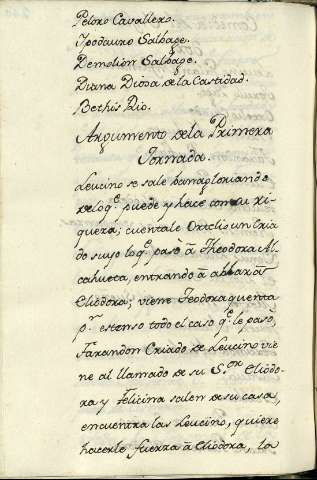 Peloro Cavallero.
Ypodauro Salbage.
Demolion Salbage.
Diana Diosa de la Castidad.
Bethis Rio.
Argumento de la Primera
Jornada.
Leucino se sale banagloriando
de lo q.e puede y hace con su ri-
queza; cuentale Ortelio un Cria
do suyo lo q.e pasò à Theodora Al-
cahueta, entrando à ablar à
Eliodora; viene Teodora quenta
p.r estenso todo el caso q.e le pasò,
Farandon Criado de Leucino vie
ne al llamado de su S.or Eliodo-
ra y Felicina salen de su casa,
encuentra las Leucino, quiere
hacerle fuerza à Eliodora, la